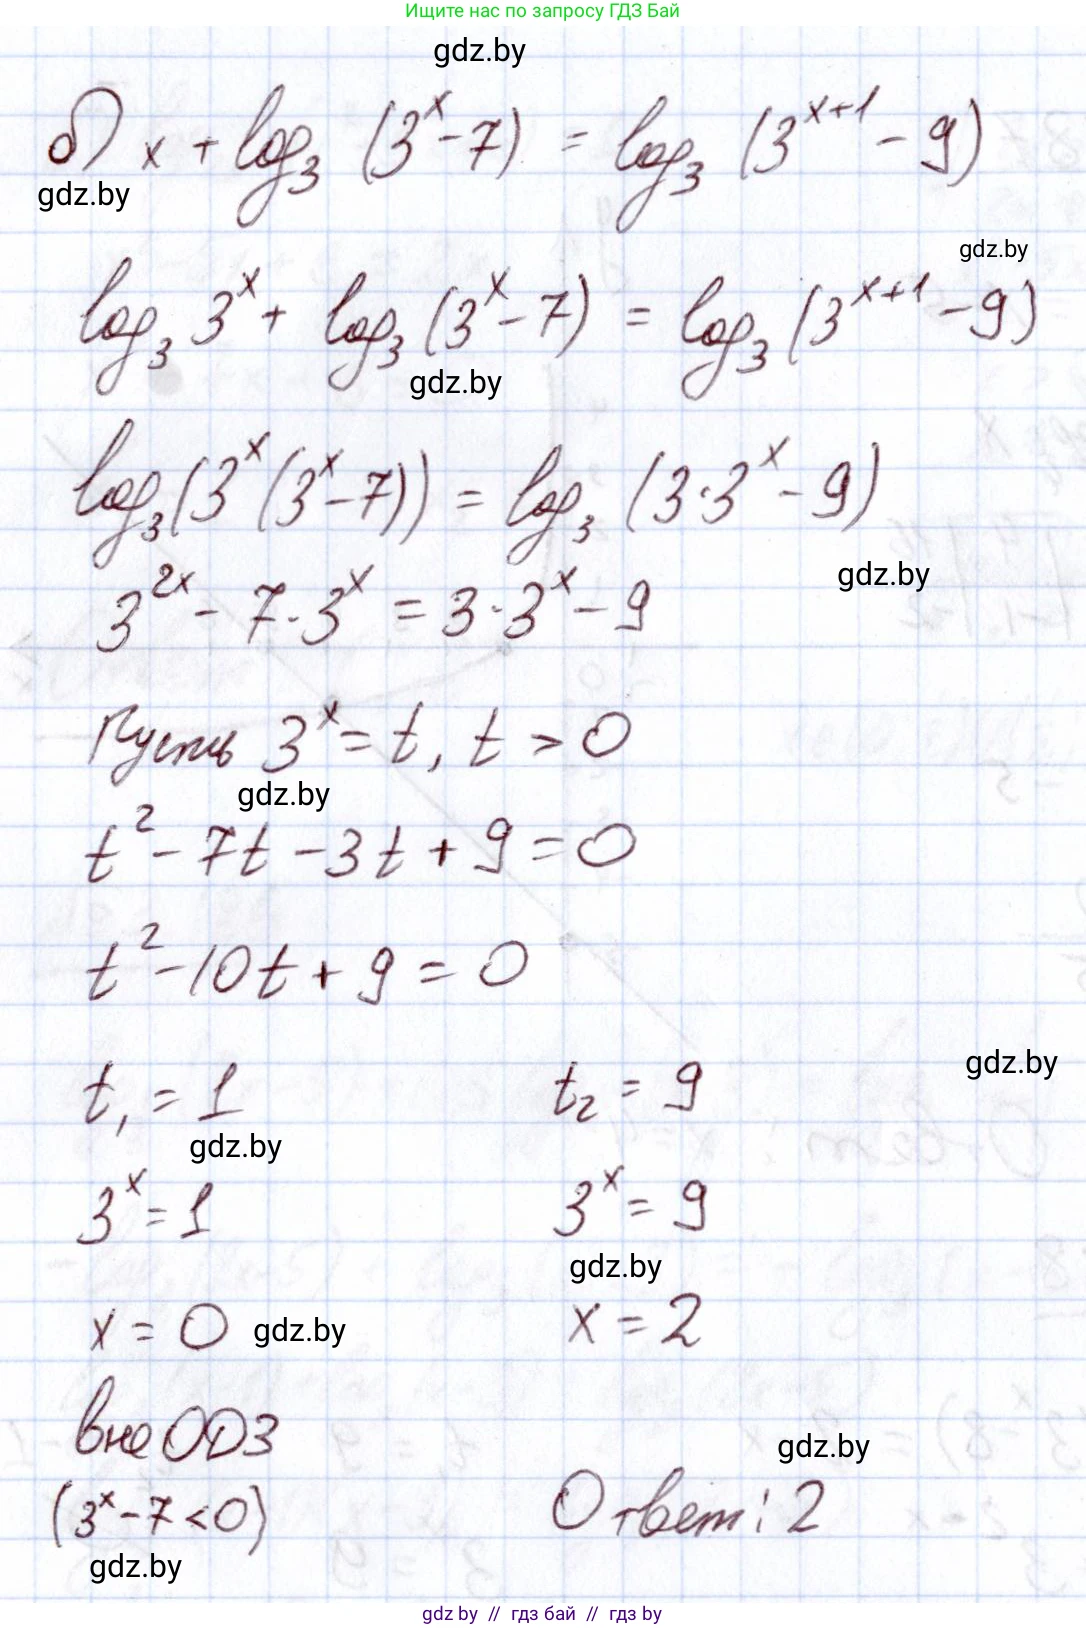 Ищите нас по запросу ГДЗ Бай
gdz.by
б) x + log₃ (3ˣ - 7) = log₃ (3ˣ⁺¹ - 9)
gdz.by
gdz.by
log₃ 3ˣ + log₃ (3ˣ - 7) = log₃ (3ˣ⁺¹ - 9)
gdz.by
log₃ (3ˣ (3ˣ - 7)) = log₃ (3·3ˣ - 9)
gdz.by
3²ˣ - 7·3ˣ = 3·3ˣ - 9
Пусть 3ˣ = t, t > 0
gdz.by
t² - 7t - 3t + 9 = 0
t² - 10t + 9 = 0
gdz.by
t₁ = 1 t₂ = 9
gdz.by
3ˣ = 1 3ˣ = 9
gdz.by
x = 0 gdz.by x = 2
вне ОДЗ
gdz.by
(3ˣ - 7 < 0) Ответ: 2
gdz.by
gdz by // гдз бай // гдз by